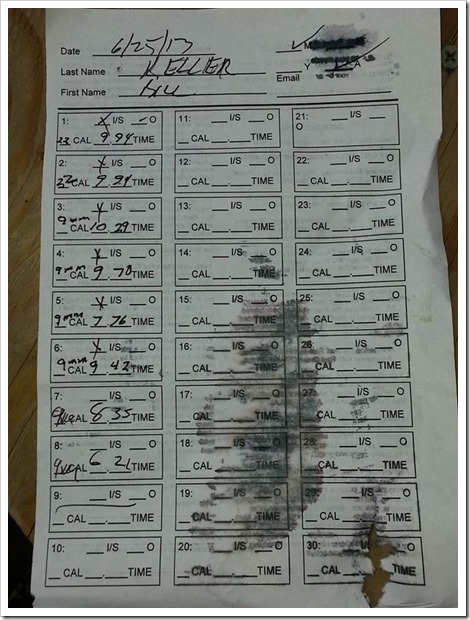 Date 6/25/13 M
Last Name KELLER Y A
First Name Bill Email
1: X I/S O
22 CAL 9.94 TIME
2: X I/S O
22 CAL TIME
3: X I/S O
9mm CAL 10.29 TIME
4: X I/S O
9mm CAL 9.78 TIME
5: X I/S O
9mm CAL 7.76 TIME
6: X I/S O
9mm CAL 9.42 TIME
7: I/S O
CAL 8.35 TIME
8: I/S O
CAL 6.21 TIME
9: I/S O
CAL . TIME
10: I/S O
CAL . TIME
11: I/S O
CAL . TIME
12: I/S O
CAL . TIME
13: I/S O
CAL . TIME
14: I/S O
CAL . TIME
15: I/S O
CAL . TIME
16: I/S O
CAL . TIME
17: I/S O
CAL . TIME
18: I/S O
CAL . TIME
19: I/S O
CAL . TIME
20: I/S O
CAL . TIME
21: I/S
O
22: I/S O
CAL . TIME
23: I/S O
CAL . TIME
24: I/S O
CAL . TIME
25: I/S O
CAL . TIME
26: I/S O
CAL . TIME
27: I/S O
CAL . TIME
28: I/S O
CAL . TIME
29: I/S O
CAL . TIME
30: I/S O
CAL . TIME